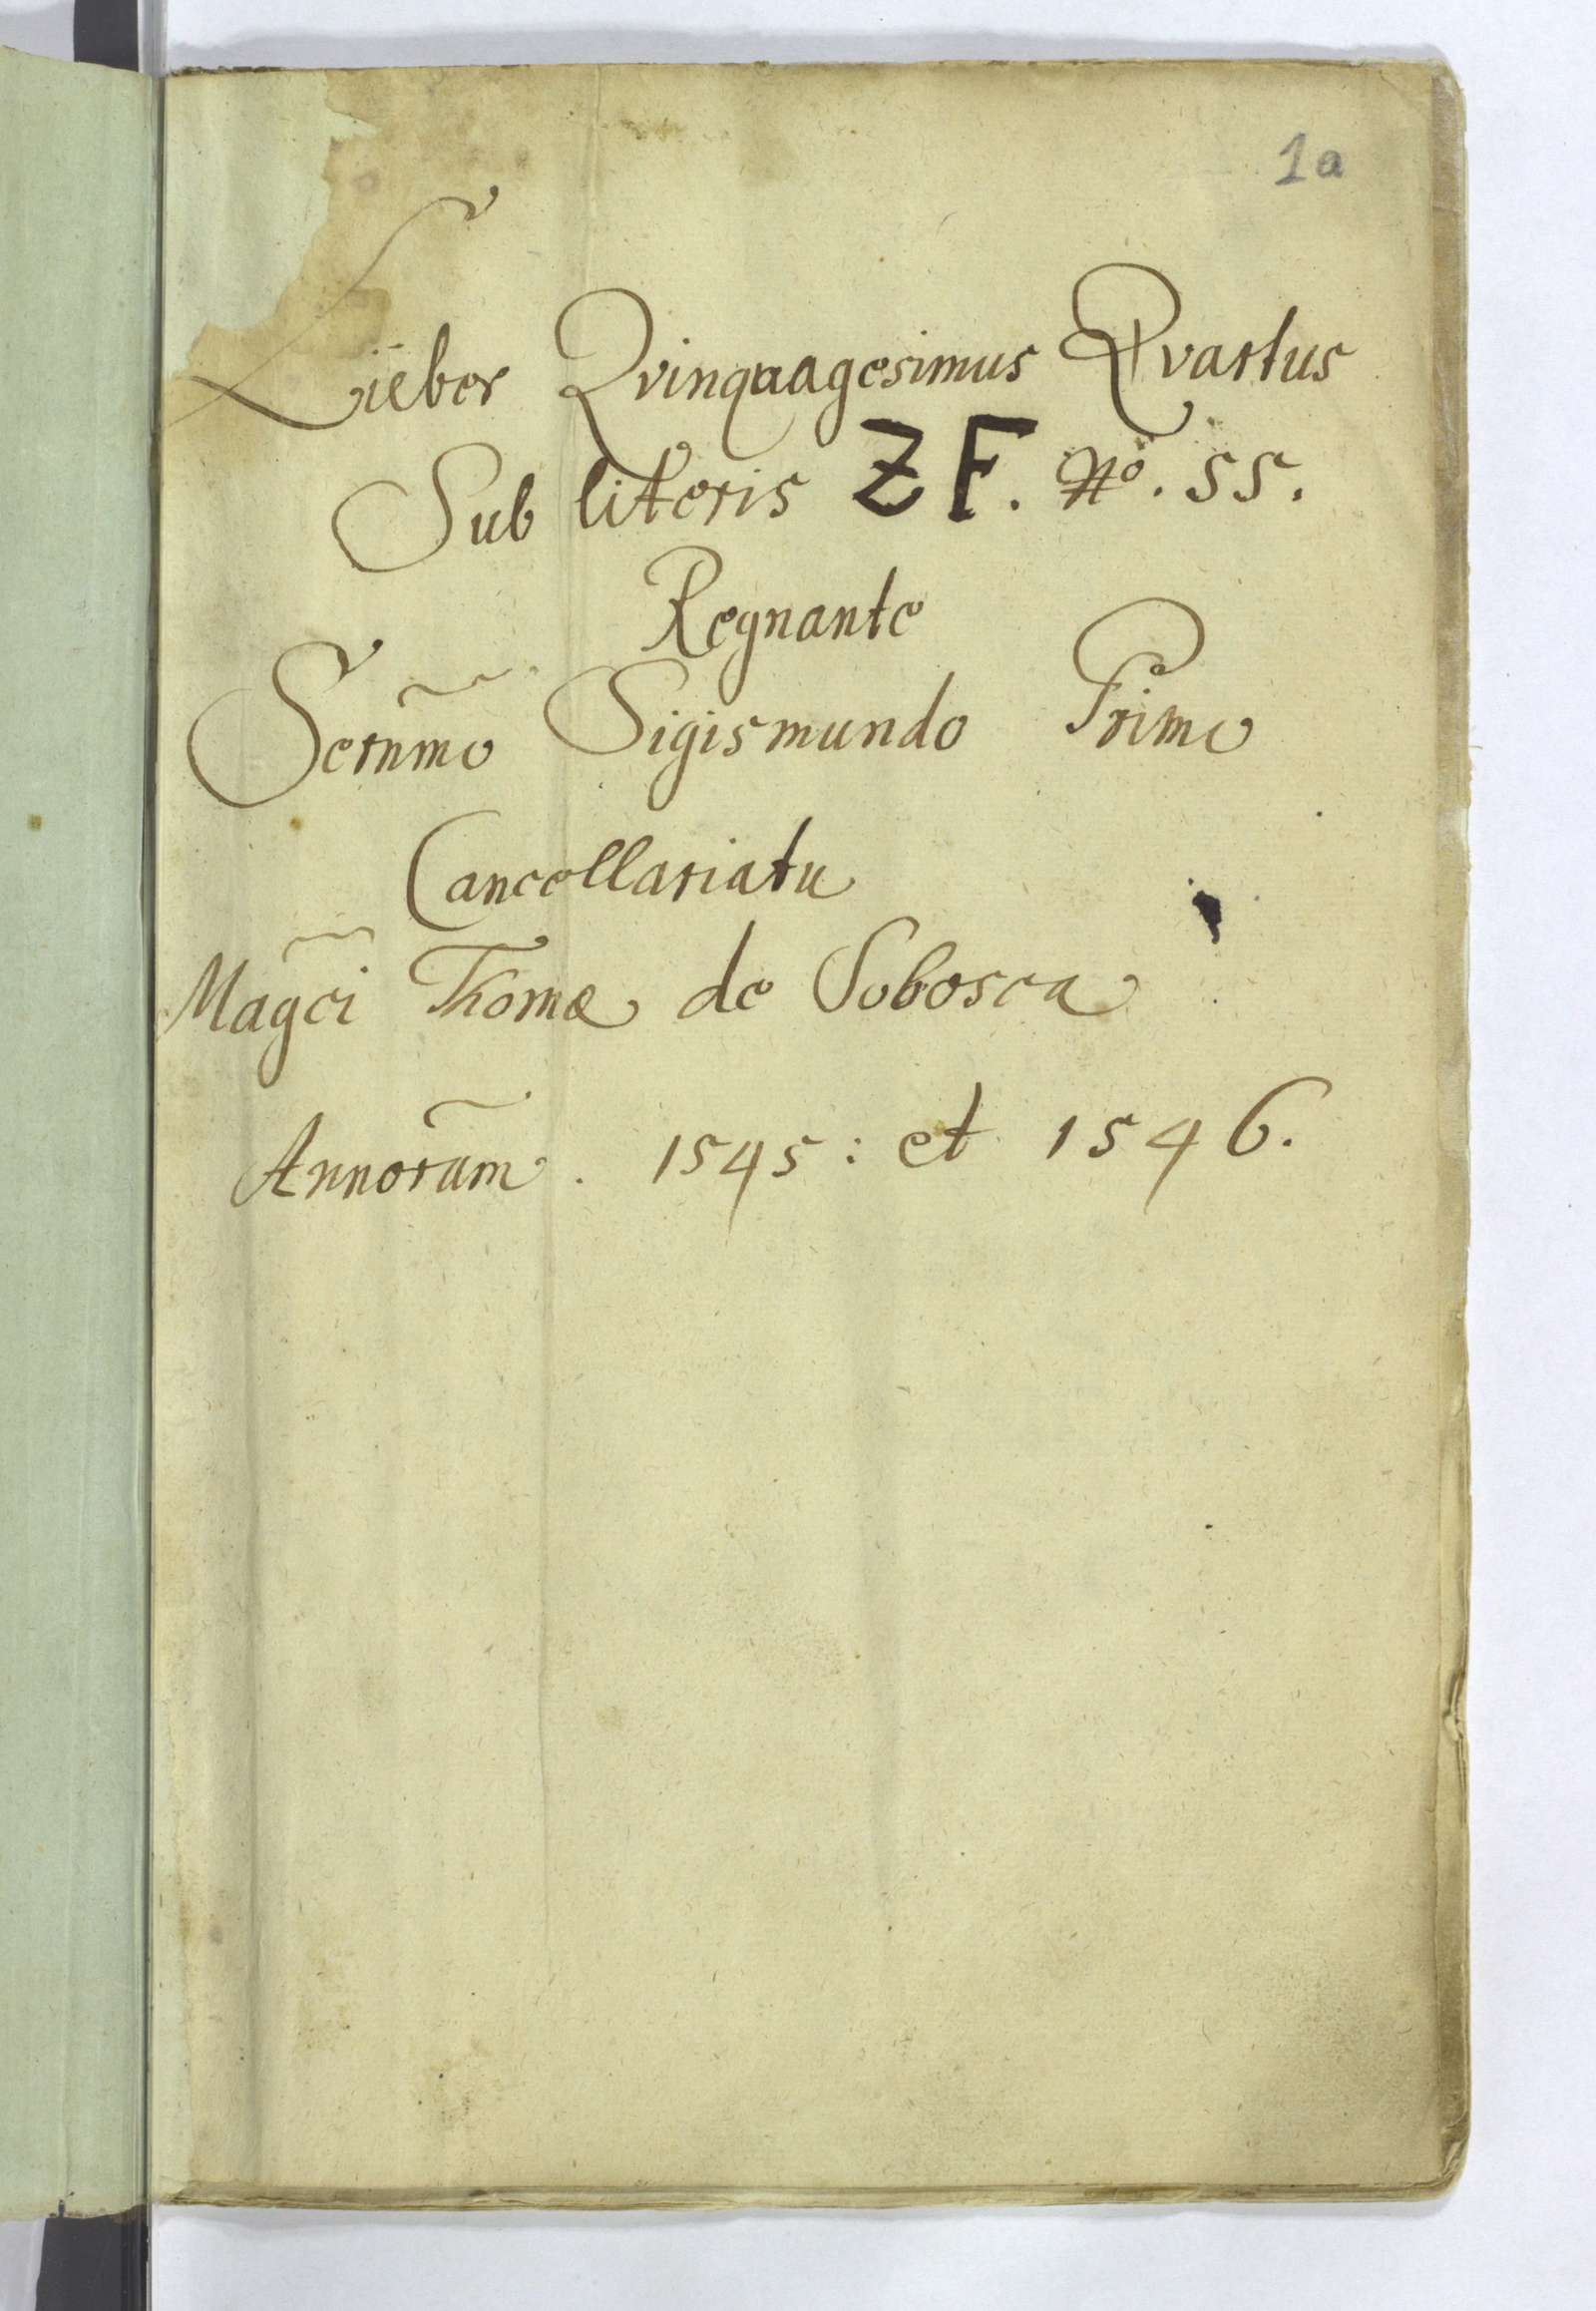 1a
Lieber Qvinquagesimus Qvartus
Sub literis ZF. No. 55.
Regnante
Sernmo Sigismundo Primo
Cancellariatu
Magci Thomæ de Sobosca
Annorum. 1545: et 1546.